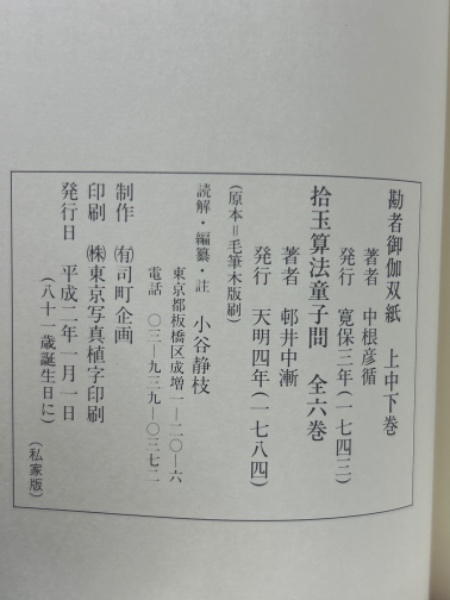 勘者御伽双紙　上中下巻
著者　中根彦循
発行　寛保三年(一七四三)
拾玉算法童子問　全六巻
著者　邨井中漸
発行　天明四年(一七八四)
(原本＝毛筆木版刷)
読解・編纂・註　小谷静枝
東京都板橋区成増一―二〇―六
電話　〇三―九三九―〇三七二
制作　㈲司町企画
印刷　㈱東京写真植字印刷
発行日　平成二年一月一日
(八十一歳誕生日に)
(私家版)